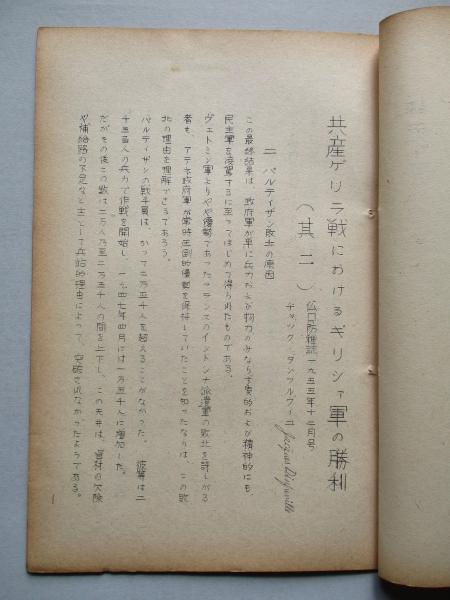 共産ゲリラ戦におけるギリシァ軍の勝利
(其二)
仏国防雑誌一九五五年十二月号
チャック・ダンフルヴィユ
二 パルティザン敗北の原因
この最終結果は、政府軍が単に兵力および物力のみならず実質的および精神的にも、
民主軍を凌駕するに至ってはじめて得られたものである。
ヴェトミン軍よりやや優勢であったフランスのインドシナ派遣軍の敗北を訝しがる
者も、アテネ政府軍が常時圧倒的優勢を保持していたことを知ったならば、この敗
北の理由を理解できるであろう。
パルティザンの戦斗員は、かつて二万五千人を超えることがなかった。彼等は二
千五百人の兵力で作戦を開始し、一九四七年四月には一万五千人に増加した。
だがその後この数は二万人乃至二万五千人の間を上下し、この天井は、資材の欠除
や補給路の不足など主として兵站的理由によって、突破されなかったようである。
1